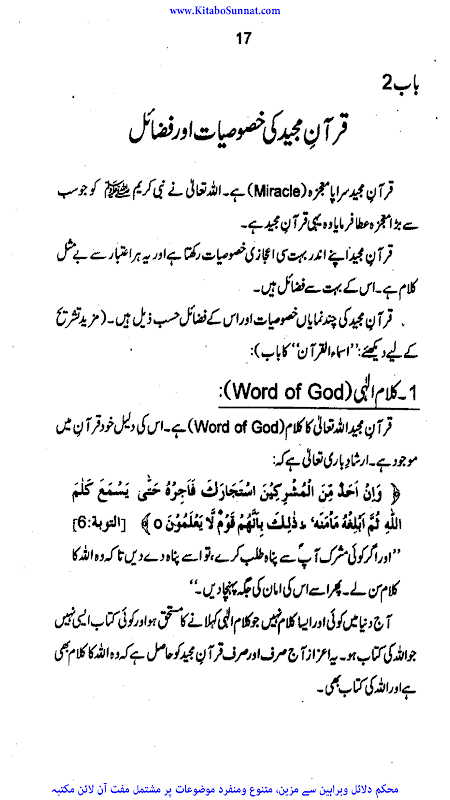 www.KitaboSunnat.com
17
باب 2
قرآنِ مجید کی خصوصیات اور فضائل
قرآنِ مجید سراپا معجزہ (Miracle) ہے۔ اللہ تعالیٰ نے نبی کریم ﷺ کو جو سب
سے بڑا معجزہ عطا فرمایا وہ یہی قرآنِ مجید ہے۔
قرآنِ مجید اپنے اندر بہت سی اعجازی خصوصیات رکھتا ہے اور یہ ہر اعتبار سے بے مثل
کلام ہے۔ اس کے بہت سے فضائل ہیں۔
قرآنِ مجید کی چند نمایاں خصوصیات اور اس کے فضائل حسب ذیل ہیں۔ (مزید تشریح
کے لیے دیکھئے: ’’اسماء القرآن‘‘ کا باب):
1۔ کلامِ الٰہی (Word of God):
قرآنِ مجید اللہ تعالیٰ کا کلام (Word of God) ہے۔ اس کی دلیل خود قرآن میں
موجود ہے۔ ارشادِ باری تعالیٰ ہے کہ:
﴿ وَاِنْ اَحَدٌ مِّنَ الْمُشْرِكِيْنَ اسْتَجَارَكَ فَاَجِرْهُ حَتّٰى يَسْمَعَ كَلٰمَ
اللّٰهِ ثُمَّ اَبْلِغْهُ مَاْمَنَهٗ ؕ ذٰلِكَ بِاَنَّهُمْ قَوْمٌ لَّا يَعْلَمُوْنَ ۝ ﴾ [التوبة:6]
’’اور اگر کوئی مشرک آپؐ سے پناہ طلب کرے، تو اسے پناہ دے دیں تاکہ وہ اللہ کا
کلام سن لے۔ پھر اسے اس کی امان کی جگہ پہنچا دیں۔‘‘
آج دنیا میں کوئی اور ایسا کلام نہیں جو کلامِ الٰہی کہلانے کا مستحق ہو اور کوئی کتاب ایسی نہیں
جو اللہ کی کتاب ہو۔ یہ اعزاز آج صرف اور صرف قرآنِ مجید کو حاصل ہے کہ وہ اللہ کا کلام بھی
ہے اور اللہ کی کتاب بھی۔
محکم دلائل وبراہین سے مزین، متنوع ومنفرد موضوعات پر مشتمل مفت آن لائن مکتبہ